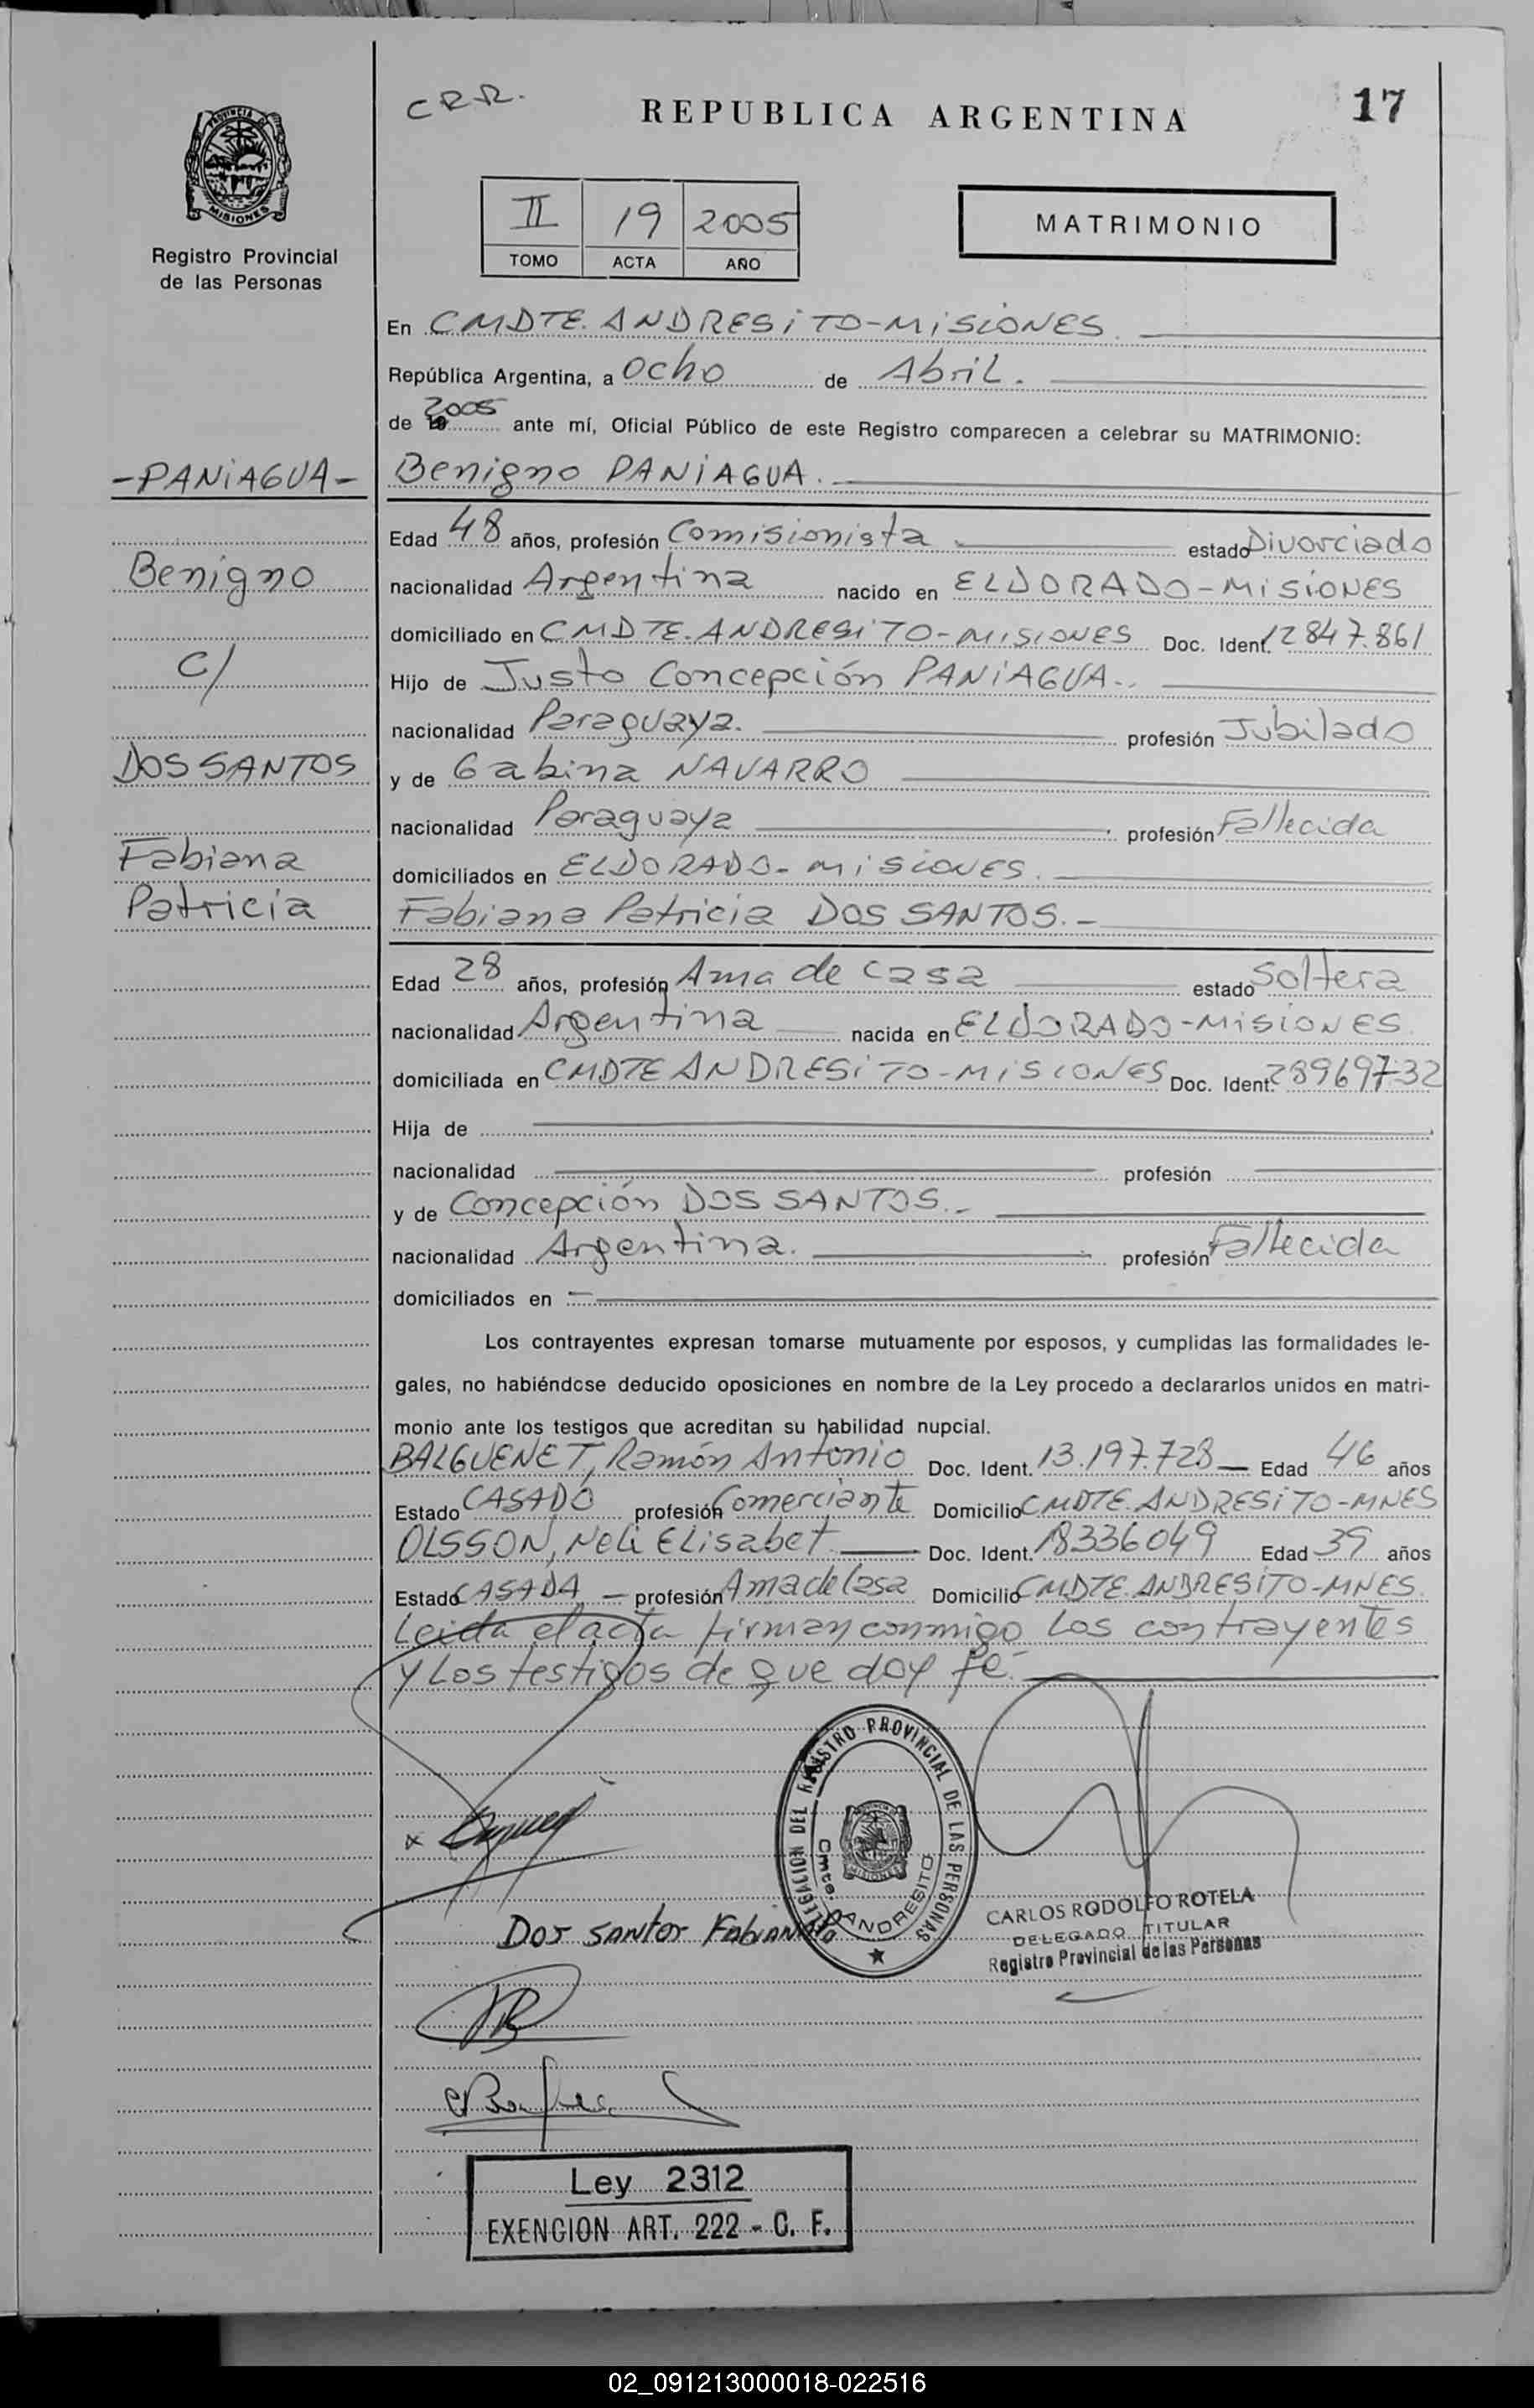 C R R.
REPUBLICA ARGENTINA
17
PROVINCIA DE
MISIONES
Registro Provincial
de las Personas
II 19 2005
TOMO ACTA AÑO
MATRIMONIO
En CMDTE. ANDRESiTO-MiSiONES
República Argentina, a ocho de Abril.
de 2005 ante mí, Oficial Público de este Registro comparecen a celebrar su MATRIMONIO:
-PANiAGUA-
Benigno PANiAGUA.
Edad 48 años, profesión Comisionista estado Divorciado
Benigno
nacionalidad Argentina nacido en ELDORADO-MiSiONES
domiciliado en CMDTE. ANDRESiTO-MISIONES Doc. Ident. 12847.861
c/
Hijo de Justo Concepción PANiAGUA..
nacionalidad Paraguaya. profesión Jubilado
DOS SANTOS
y de Gabina NAVARRO
nacionalidad Paraguaya profesión Fallecida
Fabiana
domiciliados en ELDORADO-MiSiONES.
Patricia
Fabiana Patricia DOS SANTOS.-
Edad 28 años, profesión Ama de casa estado Soltera
nacionalidad Argentina nacida en ELDORADO-MiSiONES
domiciliada en CMDTE ANDRESiTO-MISIONES Doc. Ident. 28969732
Hija de
nacionalidad profesión
y de Concepción DOS SANTOS.-
nacionalidad Argentina. profesión Fallecida
domiciliados en -
Los contrayentes expresan tomarse mutuamente por esposos, y cumplidas las formalidades le-
gales, no habiéndose deducido oposiciones en nombre de la Ley procedo a declararlos unidos en matri-
monio ante los testigos que acreditan su habilidad nupcial.
BALGUENET, Ramón Antonio Doc. Ident. 13.197.728 Edad 46 años
Estado CASADO profesión Comerciante Domicilio CMDTE. ANDRESiTO-MNES
OLSSON, Neli ELisabet Doc. Ident. 18336049 Edad 39 años
Estado CASADA - profesión Ama de Casa Domicilio CMDTE. ANDRESITO-MNES.
Leida el acta firman conmigo Los contrayentes
y Los testigos de que doy fé.
DELEGACION DEL REGISTRO PROVINCIAL DE LAS PERSONAS
Cmte. ANDRESITO
MISIONES
CARLOS RODOLFO ROTELA
DELEGADO TITULAR
Registro Provincial de las Personas
Dos Santos Fabiana
Ley 2312
EXENCION ART. 222 - C. F.
02_091213000018-022516